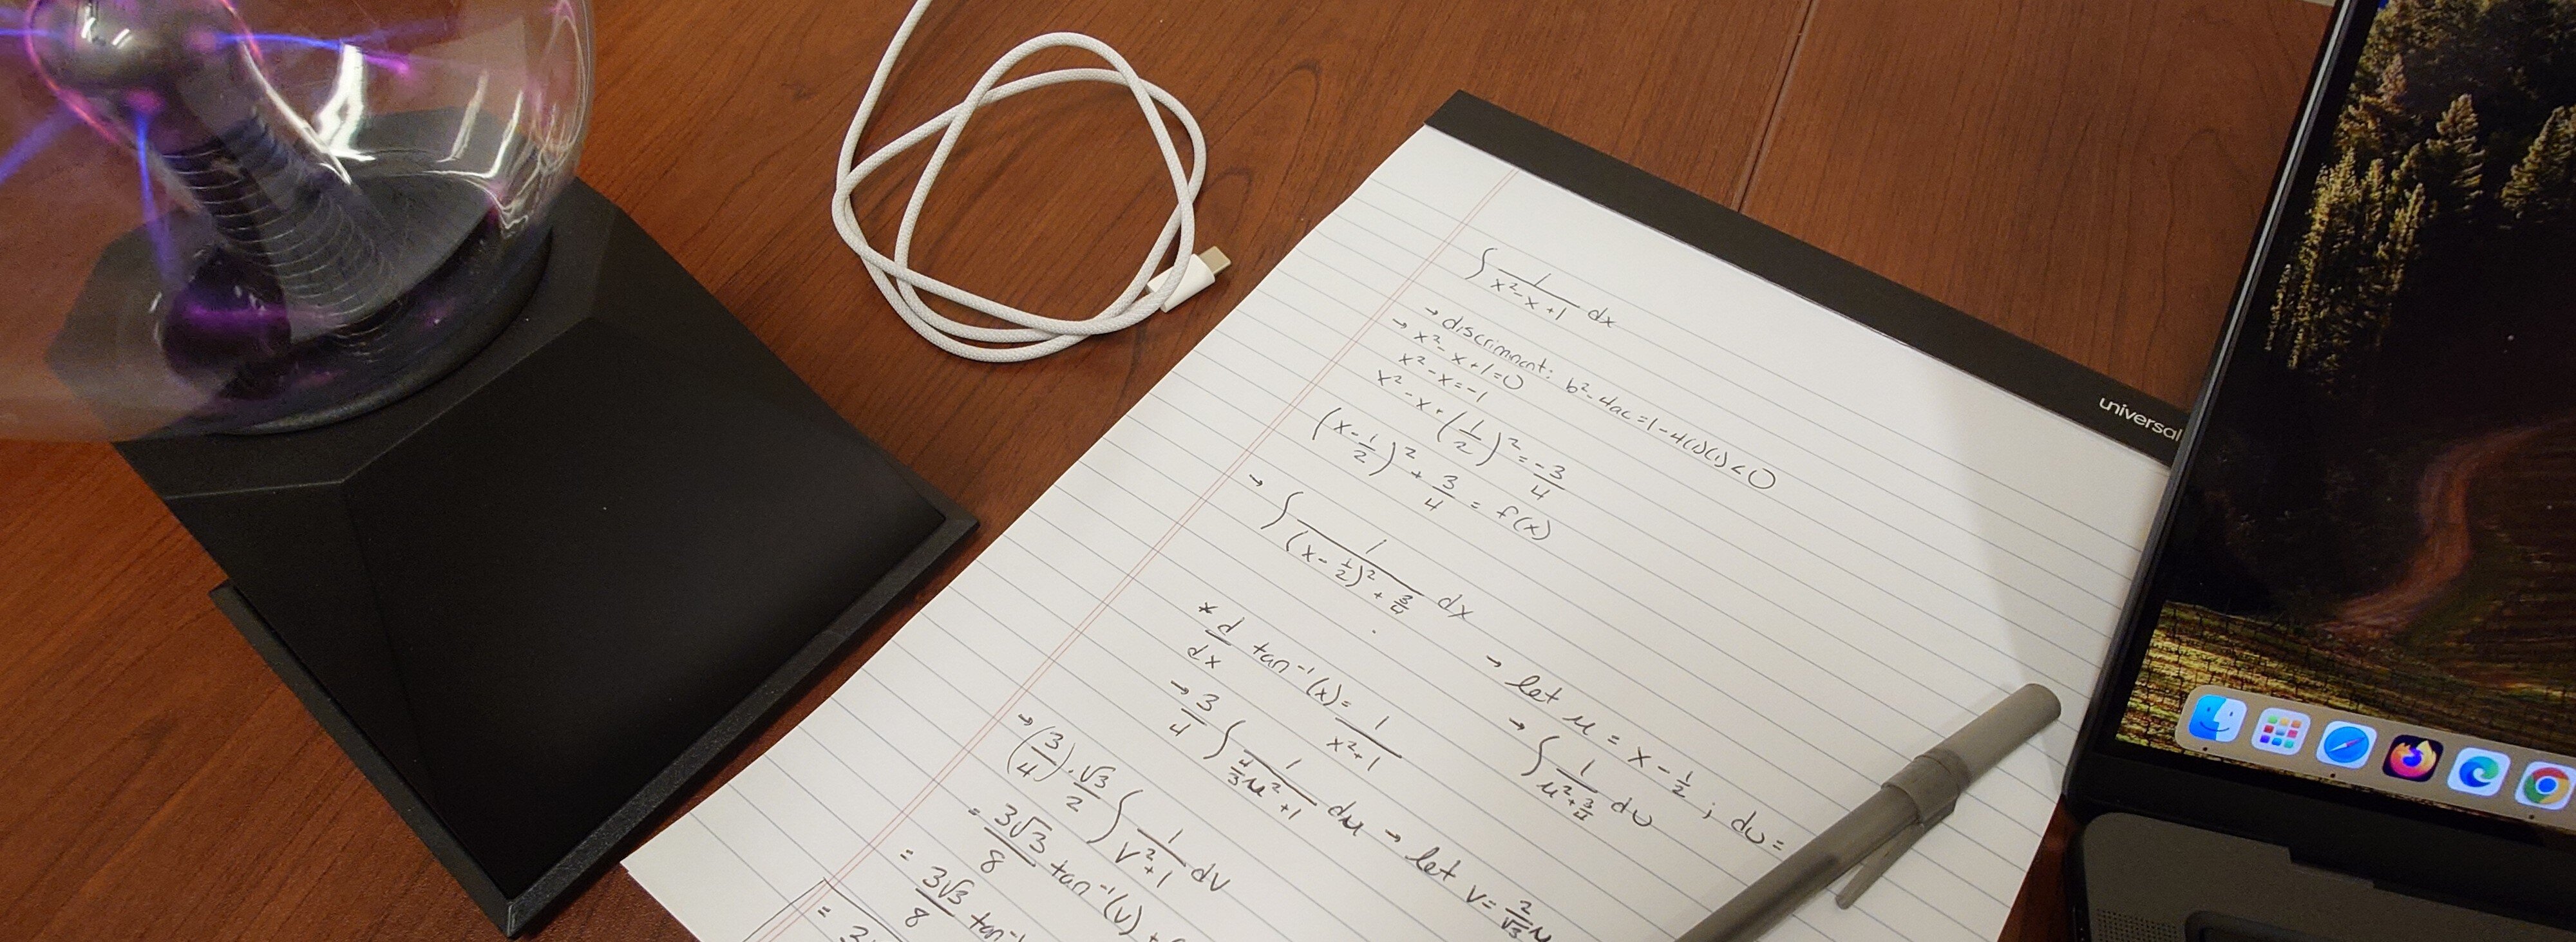 ∫ 1/(x² - x + 1) dx
→ discriminant: b² - 4ac = 1 - 4(1)(1) < 0
→ x² - x + 1 = 0
x² - x = -1
x² - x + (1/2)² = -3/4
(x - 1/2)² + 3/4 = f(x)
→ ∫ 1/((x - 1/2)² + 3/4) dx
→ let u = x - 1/2 ; du =
→ ∫ 1/(u² + 3/4) du
* d/dx tan⁻¹(x) = 1/(x² + 1)
→ 3/4 ∫ 1/(4/3 u² + 1) du → let v = 2/√3 u
→ (3/4) · √3/2 ∫ 1/(v² + 1) dv
= 3√3/8 tan⁻¹(v) +
= 3√3/8 tan⁻¹
= 3
universal